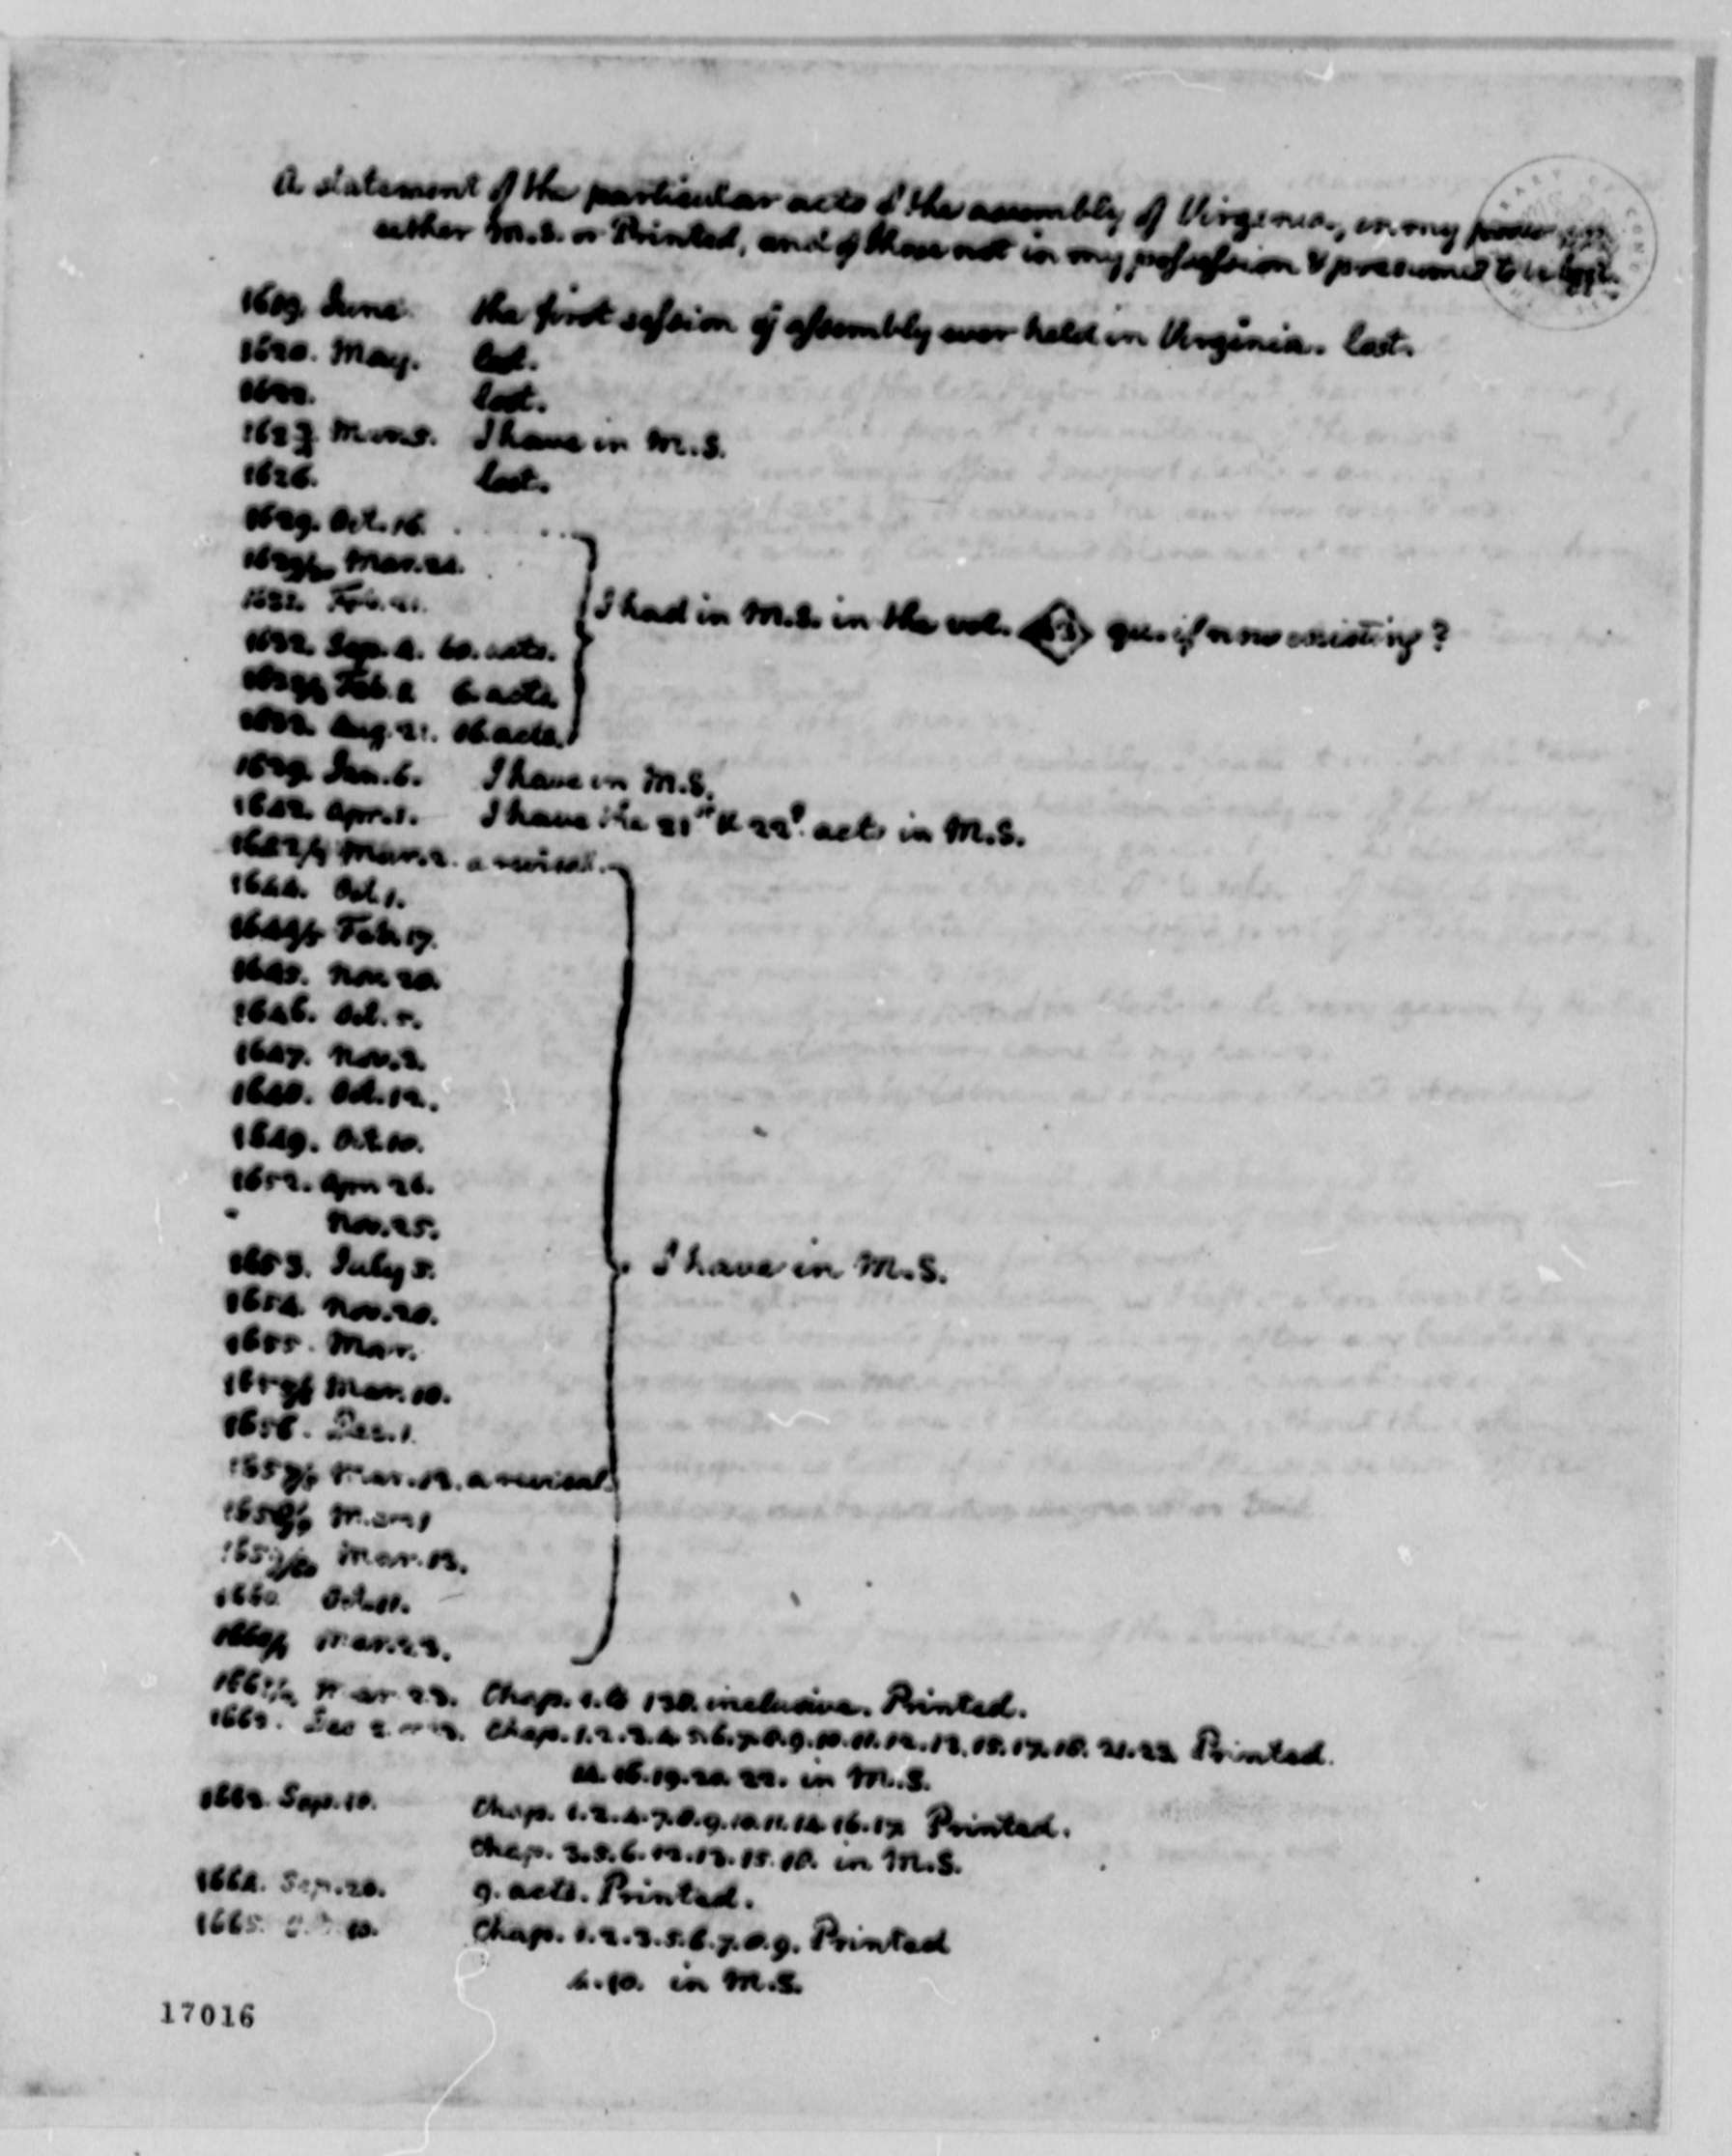 A statement of the particular acts of the assembly of Virginia, in my
either M.S. or Printed, and of those not in my possession & presumed to be lost.
June. the first session of assembly ever held in Virginia. lost.
1620. May. lost.
lost.
I have in M.S.
1626. lost.
1629. Oct. 16.
Mar. 24.
1632. Feb. 21.
1632. Sep. 4. 60. acts.
Feb. 1 6. acts
Aug. 21. 16 acts.
I had in M.S. in the vol. que. if now existing?
Jan. 6. I have in M.S.
1642. Apr. 1. I have the 21st & 22d. acts in M.S.
1642/3 Mar. 2. a revisal.
1644. Oct. 1.
1644/5 Feb. 17.
1645. Nov. 20.
1646. Oct. 5.
1647. Nov. 3.
1648. Oct. 12.
1649. Oct. 10.
1652. Apr. 26.
" Nov. 25.
1653. July 5.
1654. Nov. 20.
1655. Mar.
1655/6 Mar. 10.
1656. Dec. 1.
1657/8 Mar. 13. a revisal.
1658/9 Mar. 1
1659/60 Mar. 13.
1660. Oct. 11.
1660/1 Mar. 23.
I have in M.S.
1661/2 Mar. 23. Chap. 1. to 138. inclusive. Printed.
1662. Dec. 2. Chap. 1. 2. 3. 4. 5. 6. 7. 8. 9. 10. 11. 12. 13. 15. 17. 18. 21. 23. Printed.
14. 16. 19. 20. 22. in M.S.
1663. Sep. 10. Chap. 1. 2. 4. 7. 8. 9. 10. 11. 14. 16. 17. Printed.
Chap. 3. 5. 6. 12. 13. 15. 18. in M.S.
1664. Sep. 20. 9. acts. Printed.
1665. 10. Chap. 1. 2. 3. 5. 6. 7. 8. 9. Printed
4. 10. in M.S.
17016